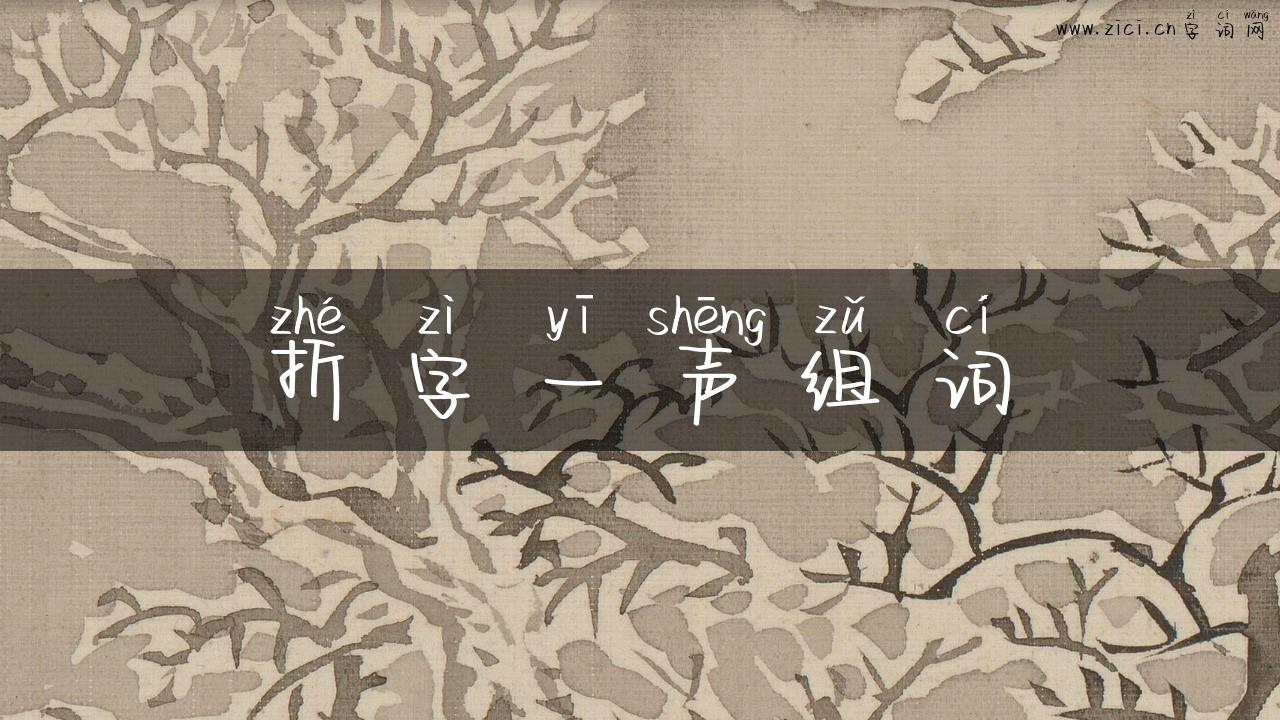 zì cí wǎng
www.zici.cn字词网
zhé zì yī shēng zǔ cí
折字一声组词